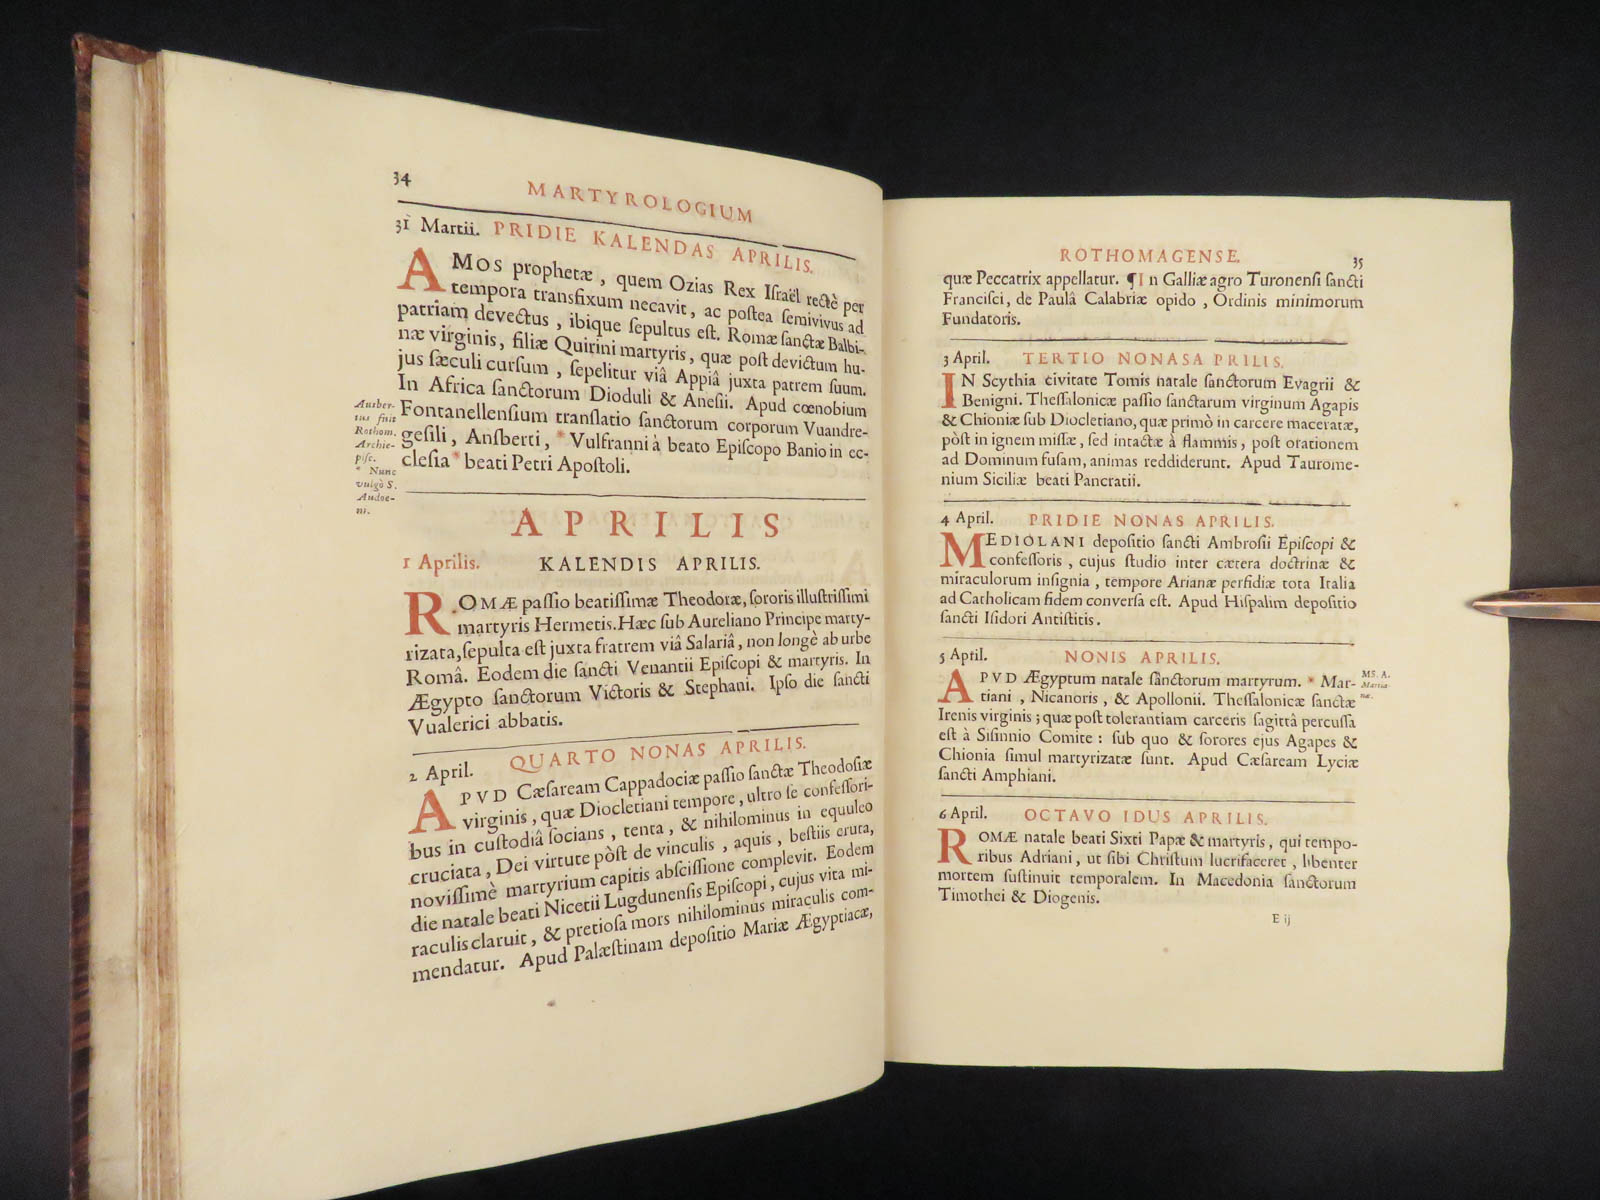 34
MARTYROLOGIUM
31 Martii. PRIDIE KALENDAS APRILIS.
AMOS prophetæ, quem Ozias Rex Israël rectè per
tempora transfixum necavit, ac postea semivivus ad
patriam devectus, ibique sepultus est. Romæ sanctæ Balbi-
næ virginis, filiæ Quirini martyris, quæ post devictum hu-
jus sæculi cursum, sepelitur viâ Appiâ juxta patrem suum.
In Africa sanctorum Dioduli & Anesii. Apud cœnobium
Fontanellensium translatio sanctorum corporum Vuandre-
gesili, Ansberti, * Vulfranni à beato Episcopo Banio in ec-
clesia * beati Petri Apostoli.
Ansber-
tus fuit
Rothom.
Archie-
pisc.
* Nunc
vulgò S.
Audoe-
ni.
APRILIS
1 Aprilis. KALENDIS APRILIS.
ROMÆ passio beatissimæ Theodoræ, sororis illustrissimi
martyris Hermetis. Hæc sub Aureliano Principe marty-
rizata, sepulta est juxta fratrem viâ Salariâ, non longè ab urbe
Româ. Eodem die sancti Venantii Episcopi & martyris. In
Ægypto sanctorum Victoris & Stephani. Ipso die sancti
Vualerici abbatis.
2 April. QUARTO NONAS APRILIS.
APVD Cæsaream Cappadociæ passio sanctæ Theodosiæ
virginis, quæ Diocletiani tempore, ultro se confessori-
bus in custodiâ socians, tenta, & nihilominus in equuleo
cruciata, Dei virtute pòst de vinculis, aquis, bestiis eruta,
novissimè martyrium capitis abscissione complevit. Eodem
die natale beati Nicetii Lugdunensis Episcopi, cujus vita mi-
raculis claruit, & pretiosa mors nihilominus miraculis com-
mendatur. Apud Palæstinam depositio Mariæ Ægyptiacæ,
ROTHOMAGENSE. 35
quæ Peccatrix appellatur. ¶ In Galliæ agro Turonensi sancti
Francisci, de Paulâ Calabriæ opido, Ordinis minimorum
Fundatoris.
3 April. TERTIO NONASA PRILIS.
IN Scythia civitate Tomis natale sanctorum Evagrii &
Benigni. Thessalonicæ passio sanctarum virginum Agapis
& Chioniæ sub Diocletiano, quæ primò in carcere maceratæ,
pòst in ignem missæ, sed intactæ à flammis, post orationem
ad Dominum fusam, animas reddiderunt. Apud Taurome-
nium Siciliæ beati Pancratii.
4 April. PRIDIE NONAS APRILIS.
MEDIOLANI depositio sancti Ambrosii Episcopi &
confessoris, cujus studio inter cætera doctrinæ &
miraculorum insignia, tempore Arianæ perfidiæ tota Italia
ad Catholicam fidem conversa est. Apud Hispalim depositio
sancti Isidori Antistitis.
5 April. NONIS APRILIS.
APVD Ægyptum natale sanctorum martyrum. * Mar-
tiani, Nicanoris, & Apollonii. Thessalonicæ sanctæ
Irenis virginis; quæ post tolerantiam carceris sagittâ percussa
est à Sisinnio Comite: sub quo & sorores ejus Agapes &
Chionia simul martyrizatæ sunt. Apud Cæsaream Lyciæ
sancti Amphiani.
MS. A.
Martia-
næ.
6 April. OCTAVO IDUS APRILIS.
ROMÆ natale beati Sixti Papæ & martyris, qui tempo-
ribus Adriani, ut sibi Christum lucrifaceret, libenter
mortem sustinuit temporalem. In Macedonia sanctorum
Timothei & Diogenis.
E ij